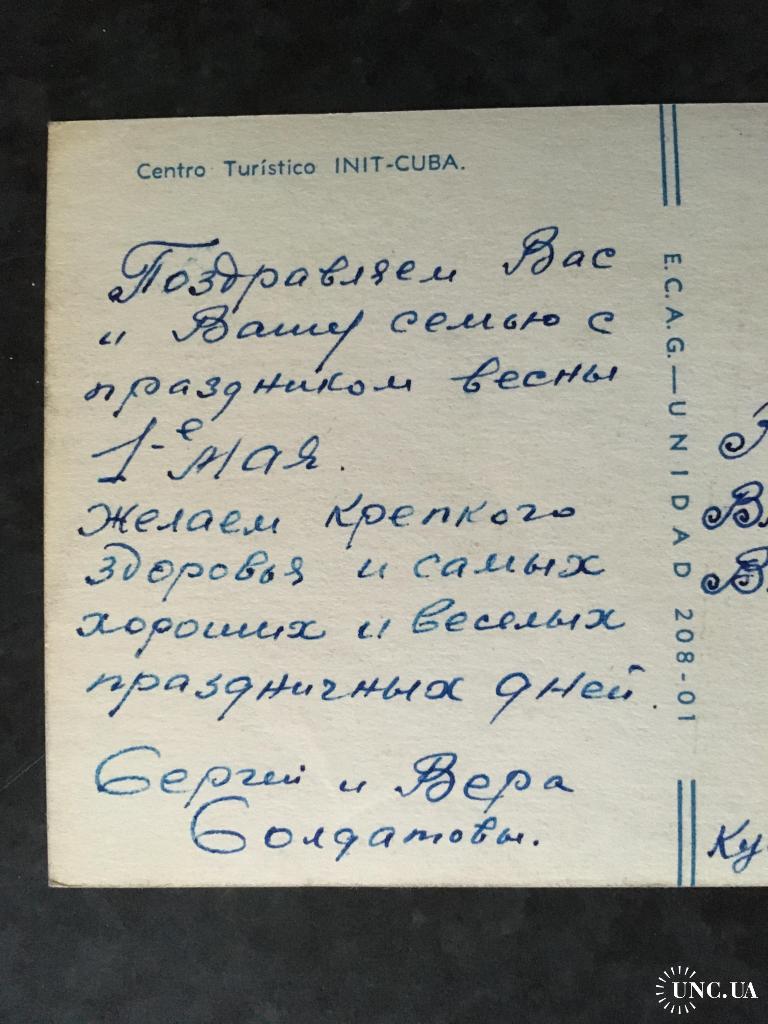 Centro Turístico INIT-CUBA.
Поздравляем Вас
и Вашу семью с
праздником весны
1-е мая.
Желаем крепкого
здоровья и самых
хороших и веселых
праздничных дней.
Сергей и Вера
Солдатовы.
E.C.A.G.—UNIDAD 208-01
Ку
UNC.UA